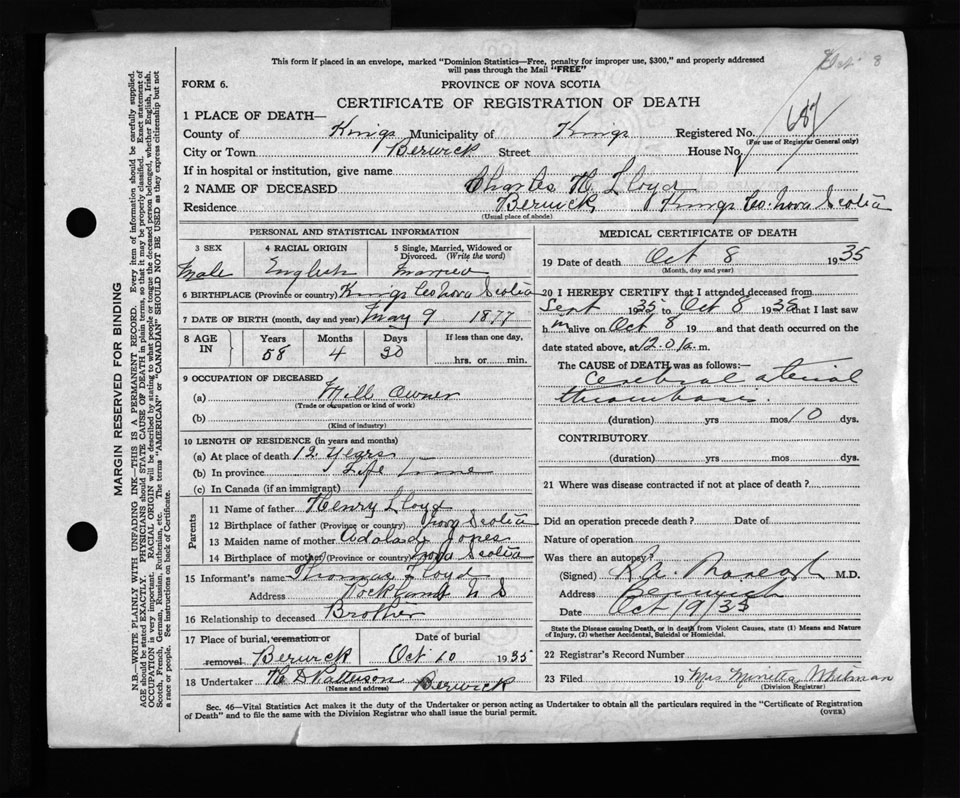 Oct 8
This form if placed in an envelope, marked "Dominion Statistics—Free, penalty for improper use, $300," and properly addressed
will pass through the Mail "FREE"
FORM 6.
PROVINCE OF NOVA SCOTIA
CERTIFICATE OF REGISTRATION OF DEATH
1 PLACE OF DEATH—
County of Kings Municipality of Kings Registered No. 687
(For use of Registrar General only)
City or Town Berwick Street House No.
If in hospital or institution, give name
2 NAME OF DECEASED Charles H. Lloyd
Residence Berwick, Kings Co. Nova Scotia
(Usual place of abode)
PERSONAL AND STATISTICAL INFORMATION
3 SEX 4 RACIAL ORIGIN 5 Single, Married, Widowed or
Divorced. (Write the word)
Male English Married
6 BIRTHPLACE (Province or country) Kings Co Nova Scotia
7 DATE OF BIRTH (month, day and year) May 9 1877
8 AGE IN Years Months Days If less than one day,
58 4 30 hrs. or min.
9 OCCUPATION OF DECEASED
(a) Mill Owner
(Trade or occupation or kind of work)
(b)
(Kind of industry)
10 LENGTH OF RESIDENCE (in years and months)
(a) At place of death 12 years
(b) In province Life Time
(c) In Canada (if an immigrant)
Parents
11 Name of father Henry Lloyd
12 Birthplace of father (Province or country) Nova Scotia
13 Maiden name of mother Adalade Jones
14 Birthplace of mother (Province or country) Nova Scotia
15 Informant's name Thomas Lloyd
Address Rockland N S
16 Relationship to deceased Brother
17 Place of burial, cremation or Date of burial
removal Berwick Oct 10 1935
18 Undertaker H D Patterson Berwick
(Name and address)
MEDICAL CERTIFICATE OF DEATH
19 Date of death Oct 8 1935
(Month, day and year)
20 I HEREBY CERTIFY that I attended deceased from
Sept 1935, to Oct 8 1935 that I last saw
him alive on Oct 8 19 and that death occurred on the
date stated above, at 12.01 a.m.
The CAUSE of DEATH was as follows:—
Cerebral aterial
thrombosis.
(duration) yrs mos 10 dys.
CONTRIBUTORY
(duration) yrs mos dys.
21 Where was disease contracted if not at place of death?
Did an operation precede death? Date of
Nature of operation
Was there an autopsy?
(Signed) M.D.
Address Berwick
Date Oct 9/35
State the Disease causing Death, or in death from Violent Causes, state (1) Means and Nature
of Injury, (2) whether Accidental, Suicidal or Homicidal.
22 Registrar's Record Number
23 Filed 19 Mrs Minetta Whitman
(Division Registrar)
Sec. 46—Vital Statistics Act makes it the duty of the Undertaker or person acting as Undertaker to obtain all the particulars required in the "Certificate of Registration
of Death" and to file the same with the Division Registrar who shall issue the burial permit.
(OVER)
MARGIN RESERVED FOR BINDING
N.B.—WRITE PLAINLY WITH UNFADING INK—THIS IS A PERMANENT RECORD. Every item of information should be carefully supplied.
AGE should be stated EXACTLY. PHYSICIANS should STATE CAUSE OF DEATH in plain terms, so that it may be properly classified. Exact statement of
OCCUPATION is very important. RACIAL ORIGIN will be described by stating to what people or tongue the deceased person belonged, whether English, Irish,
Scotch, French, German, Russian, Ruthenian, etc. The terms "AMERICAN" or "CANADIAN" SHOULD NOT BE USED as they express citizenship but not
a race or people. See instructions on back of Certificate.